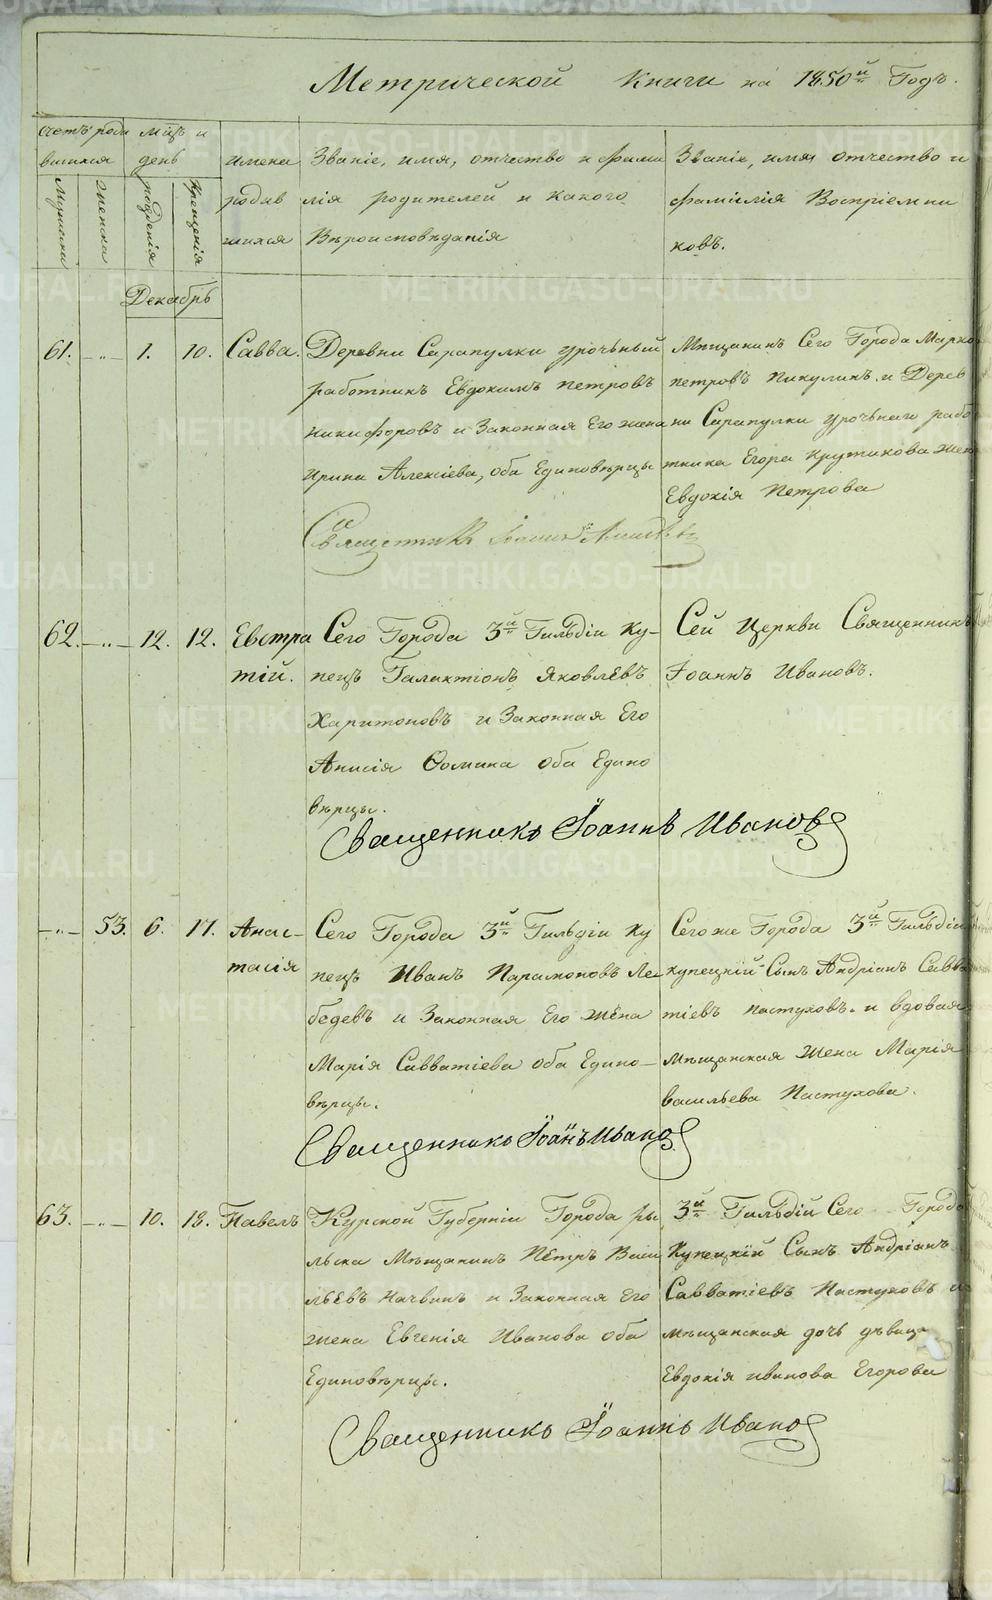 Метрической Книги на 1850й Годъ.
Счетъ роди вшихся
мужеска
женска
Мѣцъ и день
рожденія
крещенія
имена родив шихся
Званіе, имя, отчество и фами лія родителей и какого Вѣроисповѣданія
Званіе, имя, отчество и фамилія Воспріемни ковъ.
Декабрь
61. -"- 1. 10. Савва.
Деревни Сарапулки урочьный
работникъ Евдокимъ петровъ
никифоровъ и Законная Его жена
Ирина Алексіева, оба Единовѣрцы
Мѣщанинъ Сего Города Марко
петровъ Пикулинъ. и Дерев
ни Сарапулки урочьнаго рабо
тника Егора Крутикова жена
Евдокія Петрова
Священникъ Іоаннъ
62. -"- 12. 12. Евстра
тій.
Сего Города 3й Гильдіи Ку-
пецъ Галактіонъ Яковлевъ
Харитоновъ и Законная Его
Анисія Ѳомина оба Едино
вѣрцы.
Сей Церкви Священникъ
Іоаннъ Ивановъ.
Священникъ Іоаннъ Ивановъ
-"- 53. 6. 17. Анас-
тасія
Сего Города 3й Гильдіи Ку
пецъ Иванъ Парамоновъ Ле-
бедевъ и Законная Его жена
Марія Савватіева оба Едино-
вѣрцы.
Сегоже Города 3й Гильдіи
купецкій Сынъ Андріанъ Савва
тіевъ пастуховъ. и вдовая
мѣщанская жена Марія
васильева Пастухова.
Священникъ Іоаннъ Ивановъ
63. -"- 10. 18. Павелъ
Курской Губерніи Города ры
льска Мѣщанинъ Петръ Васи
льевъ Начвинъ и Законная его
жена Евгенія Иванова оба
Единовѣрцы.
3й Гильдіи Сего Города
Купецкій Сынъ Андріанъ
Савватіевъ Пастуховъ и
мѣщанская дочь дѣвица
Евдокія иванова Егорова
Священникъ Іоаннъ Ивановъ
METRIKI.GASO-URAL.RU